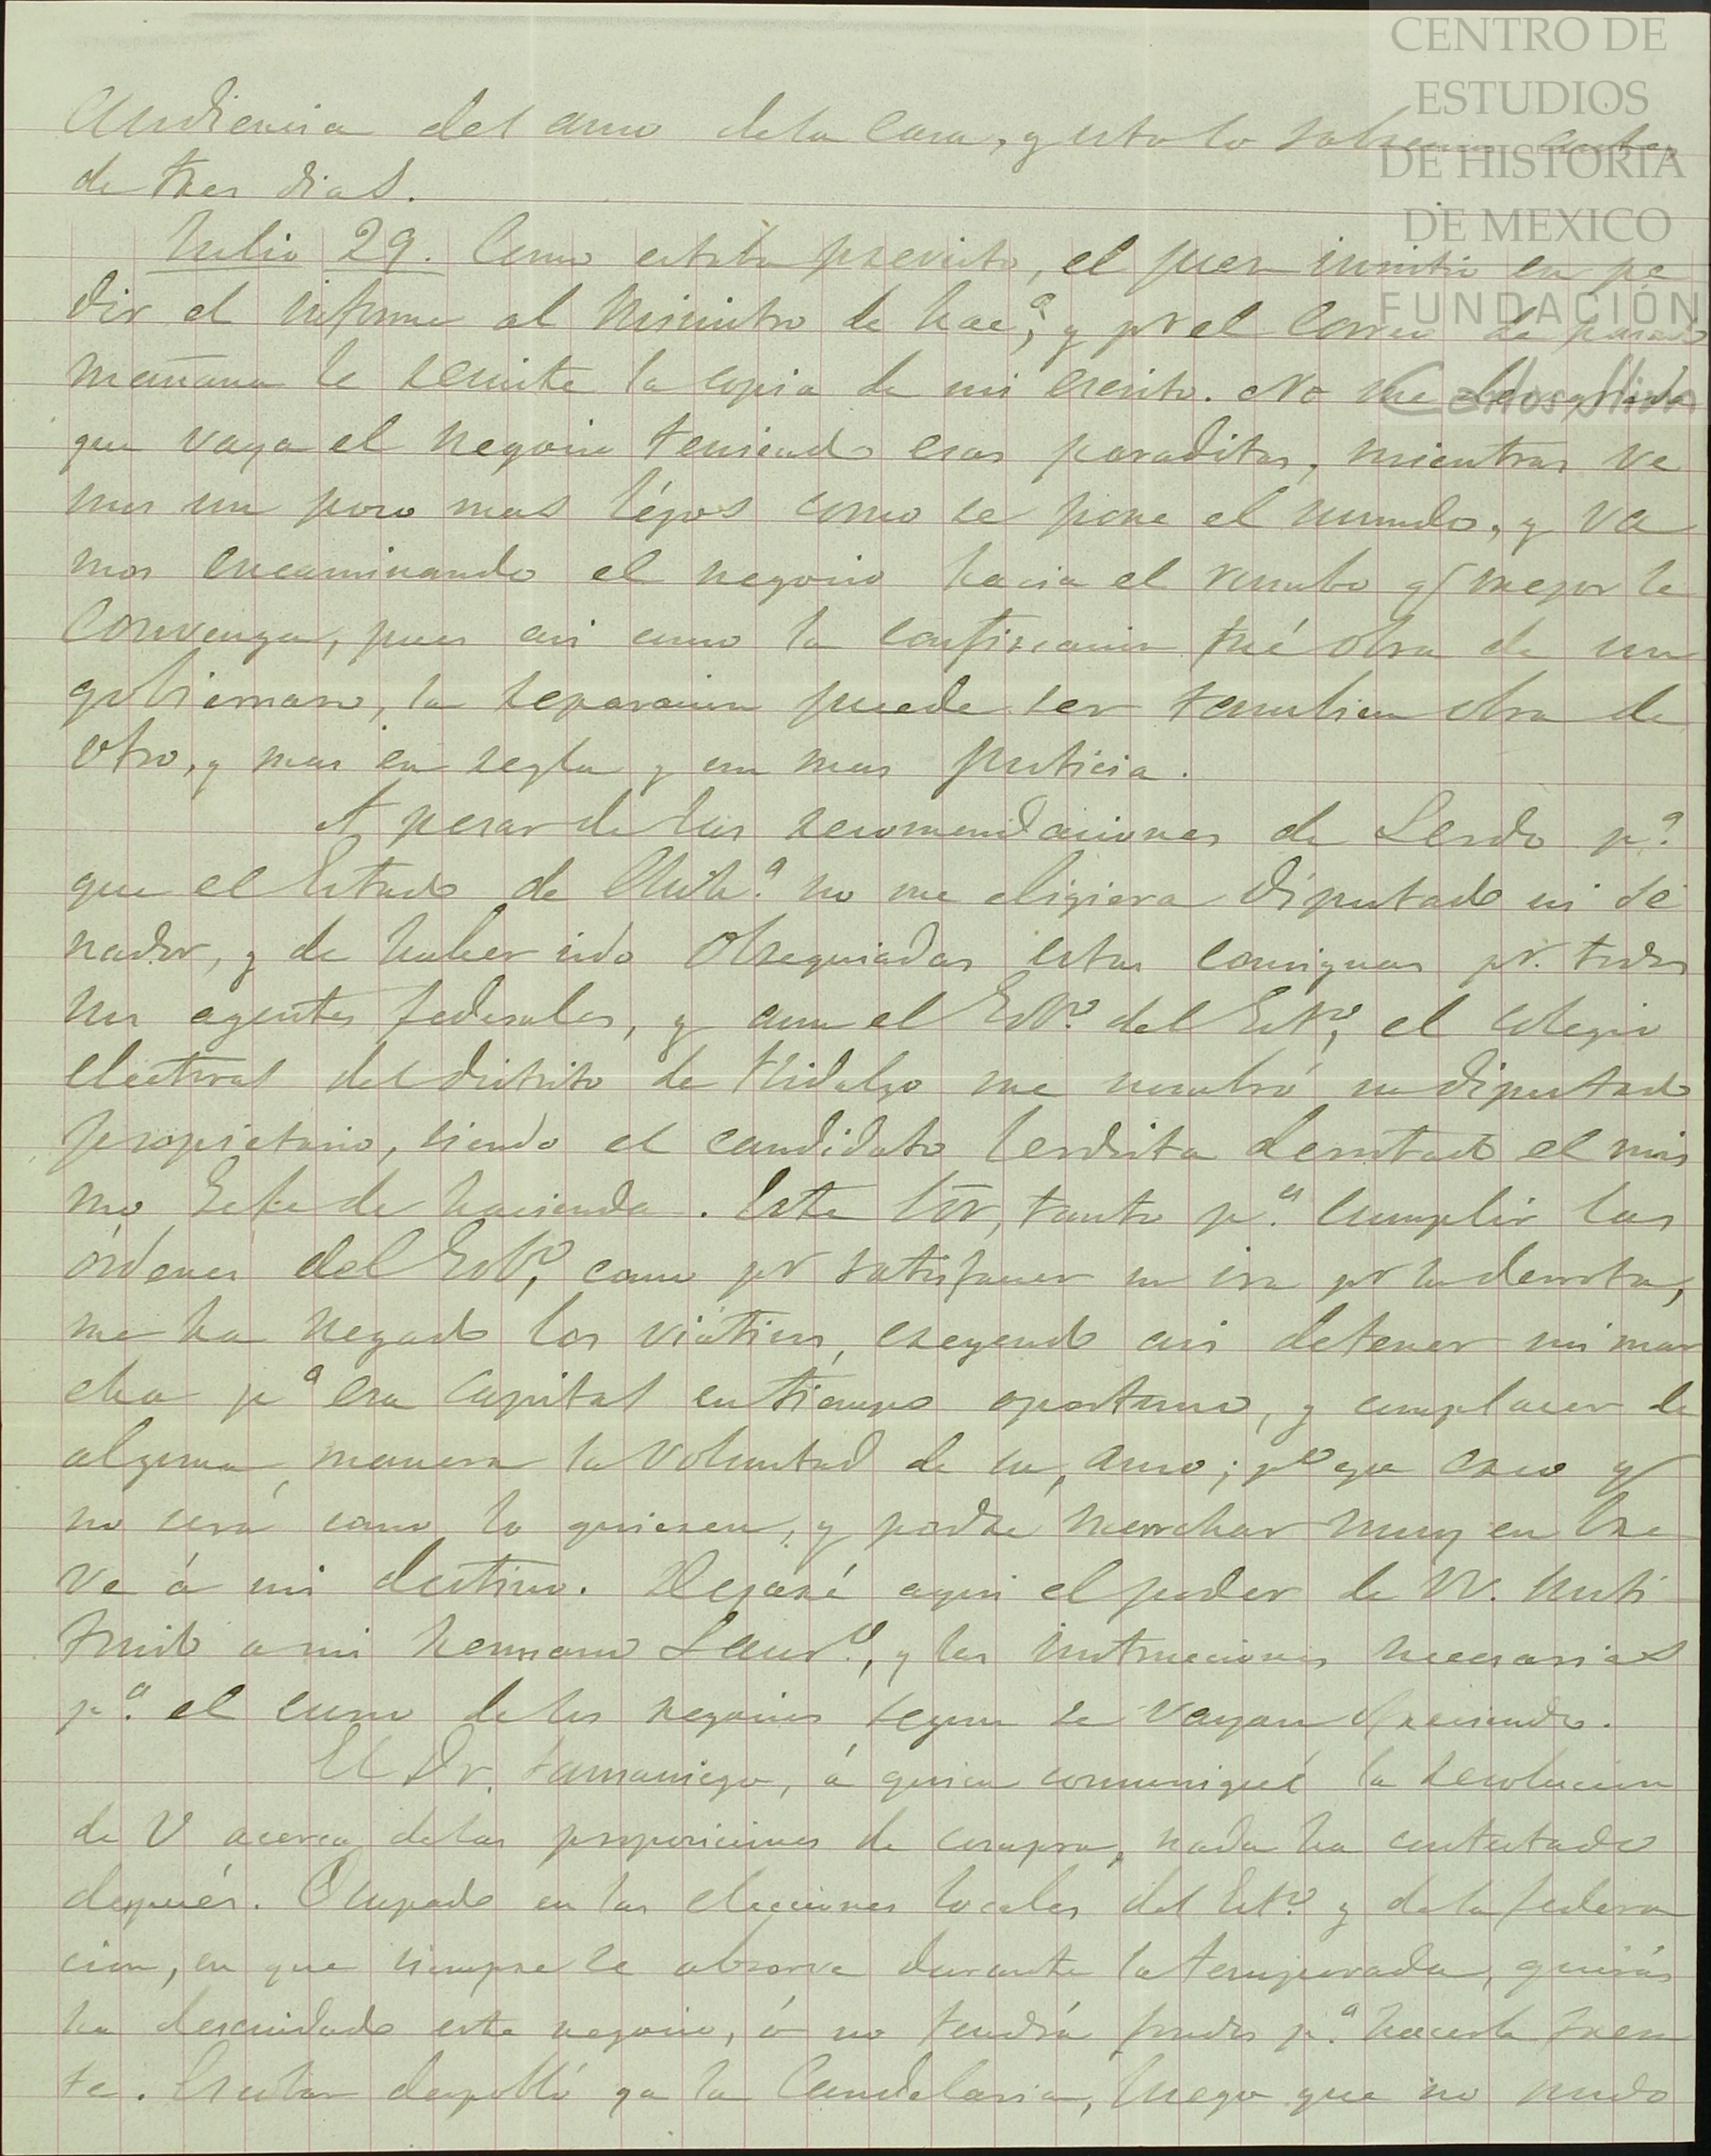 CENTRO DE
ESTUDIOS
DE HISTORIA
DE MEXICO
FUNDACIÓN
Carlos Slim
Audiencia del amo de la casa, y esto lo sabremos antes
de tres dias.
Julio 29. Como estaba previsto, el juez insistió en pe
dir el informe al Ministro de Hac.ª, y pr el correo de pasado
mañana le remite la copia de mi escrito. No me desagrada
que vaya el negocio teniendo esas paraditas, mientras ve
mos un poco mas léjos como se pone el mundo, y va
mos encaminando el negocio hacia el rumbo q mejor le
convenga, pues asi como la confiscacion fué obra de un
gobierno, la reparacion puede ser tambien obra de
otro, y mas en regla y con mas justicia.
A pesar de las recomendaciones de Lerdo p.ª
que el Estado de Chih.ª no me eligiera diputado ni se
nador, y de haber sido obsequiadas estas consignas pr. todos
sus agentes federales, y aun el Gob.º del Est.º, el colegio
electoral del distrito de Hidalgo me nombró su diputado
propietario, siendo el candidato lerdista derrotado el mis
mo Gefe de hacienda. Este Sor, tanto p.ª cumplir las
órdenes del Gob.º, como pr satisfacer su ira pr la derrota,
me ha negado los viáticos, creyendo asi detener mi mar
cha p.ª esa capital en tiempo oportuno, y complacer de
alguna manera la voluntad de su amo; pº yo creo q
no será como lo quieren, y podré marchar muy en bre
ve á mi destino. Dejaré aqui el poder de VV. susti
tuido a mi hermano Laur.º, y las instrucciones necesarias
p.ª el curso de los negocios segun se vayan ofreciendo.
El Dr. Samaniego, á quien comuniqué la resolucion
de V acerca de las proposiciones de compra, nada ha contestado
después. Ocupado en las elecciones locales del Est.º y de la federa
cion, en que siempre se absorve durante la temporada, quizás
ha descuidado este negocio, ó no tendrá fondos p.ª hacerle fren
te. Escobar despobló ya la Candelaria, luego que no pudo